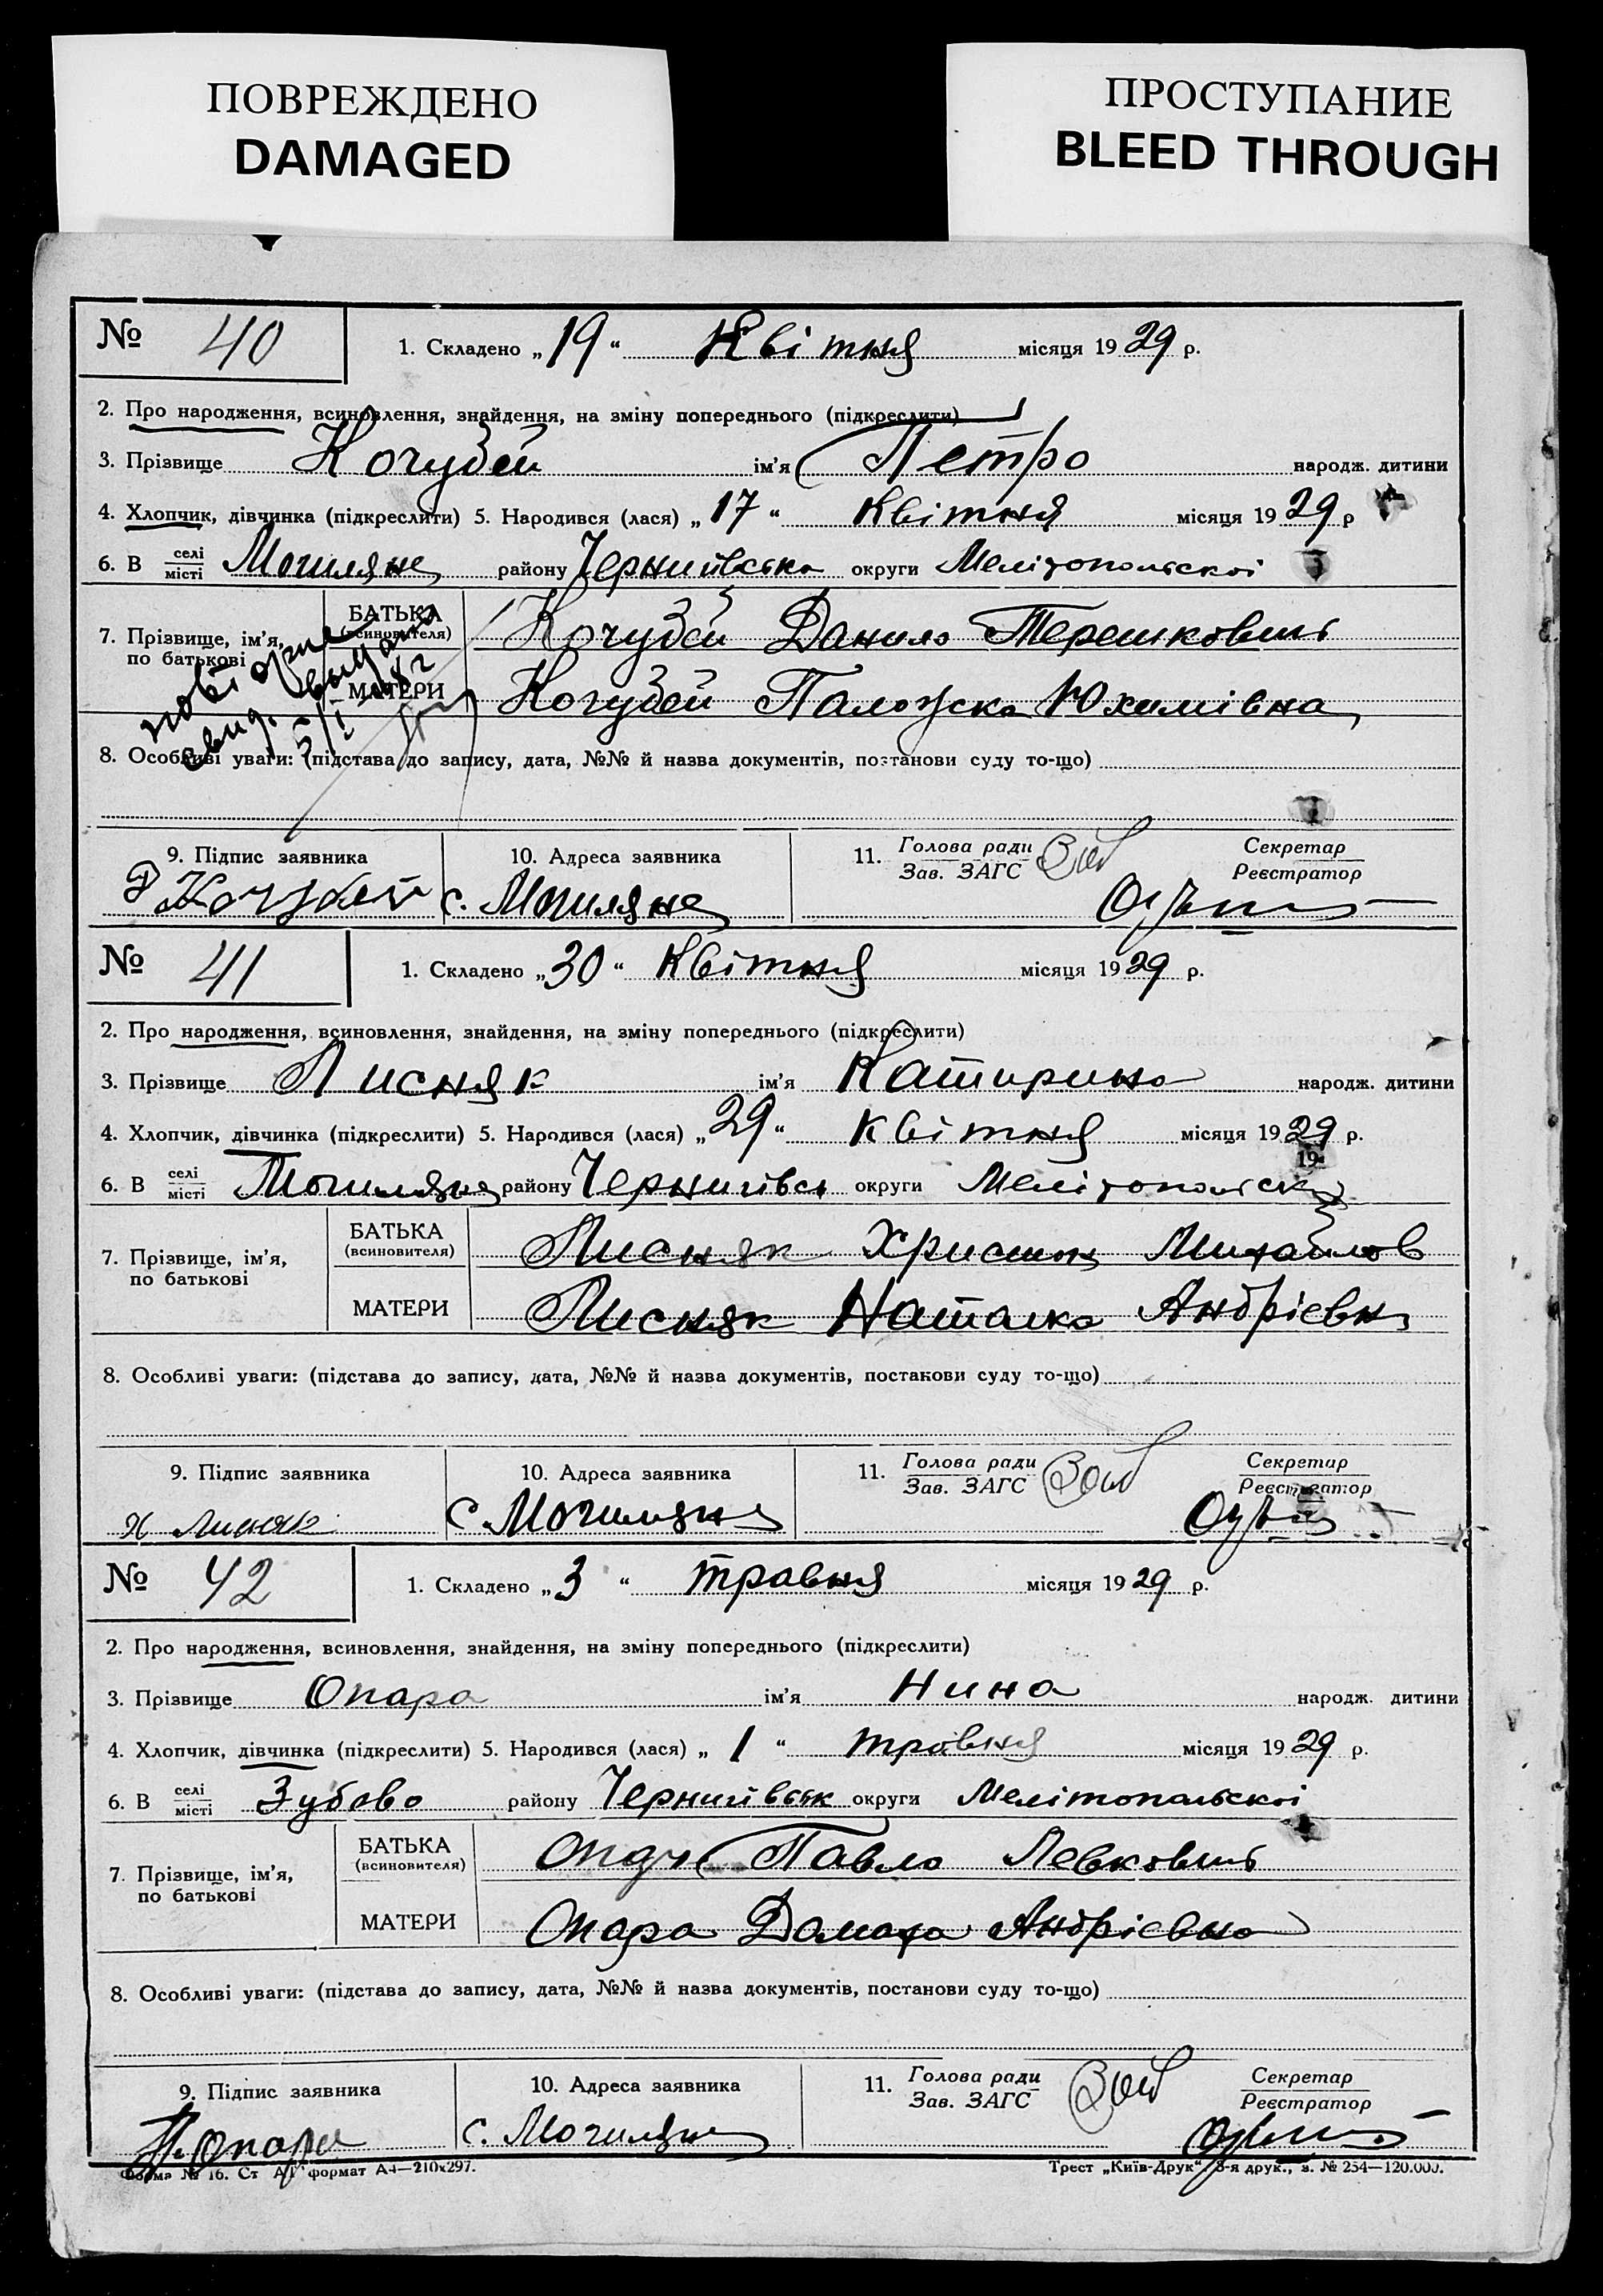 ПОВРЕЖДЕНО
DAMAGED
ПРОСТУПАНИЕ
BLEED THROUGH
№ 40 1. Складено „19“ Квітня місяця 1929 р.
2. Про народження, всиновлення, знайдення, на зміну попереднього (підкреслити)
3. Прізвище Кочубей ім'я Петро народж. дитини
4. Хлопчик, дівчинка (підкреслити) 5. Народився (лася) „17“ Квітня місяця 1929 р
6. В селі місті Могиляне району Чернигівська округи Мелітопольскоі
7. Прізвище, ім'я, по батькові БАТЬКА (всиновителя) Кочубей Данило Терешкович
МАТЕРИ Кочубей Паложка Юхимівна
8. Особливі уваги: (підстава до запису, дата, №№ й назва документів, постанови суду то-що)
9. Підпис заявника 10. Адреса заявника 11. Голова ради Зав. ЗАГС Секретар Реєстратор
Кочубей с. Могиляне
№ 41 1. Складено „30“ Квітня місяця 1929 р.
2. Про народження, всиновлення, знайдення, на зміну попереднього (підкреслити)
3. Прізвище Лисняк ім'я Катирина народж. дитини
4. Хлопчик, дівчинка (підкреслити) 5. Народився (лася) „29“ Квітня місяця 1929 р.
19
6. В селі місті Могиляня району Чернигівсь округи Мелітопольск
7. Прізвище, ім'я, по батькові БАТЬКА (всиновителя) Лисняк Христин Михайлов
МАТЕРИ Лисняк Наталка Андрієвн
8. Особливі уваги: (підстава до запису, дата, №№ й назва документів, постанови суду то-що)
9. Підпис заявника 10. Адреса заявника 11. Голова ради Зав. ЗАГС Секретар Реєстратор
х Лисняк с. Могиляня
№ 42 1. Складено „3“ травня місяця 1929 р.
2. Про народження, всиновлення, знайдення, на зміну попереднього (підкреслити)
3. Прізвище Опара ім'я Нина народж. дитини
4. Хлопчик, дівчинка (підкреслити) 5. Народився (лася) „1“ травня місяця 1929 р.
6. В селі місті Зубово району Чернигівськ округи Мелітопольскоі
7. Прізвище, ім'я, по батькові БАТЬКА (всиновителя) Павло Левкович
МАТЕРИ Опара Домаха Андрієвна
8. Особливі уваги: (підстава до запису, дата, №№ й назва документів, постанови суду то-що)
9. Підпис заявника 10. Адреса заявника 11. Голова ради Зав. ЗАГС Секретар Реєстратор
П. Опара с. Могиляня
Форма № 16. Ст формат А4—210х297. Трест „Київ-Друк“, 3-я друк., з. № 254—120.000.